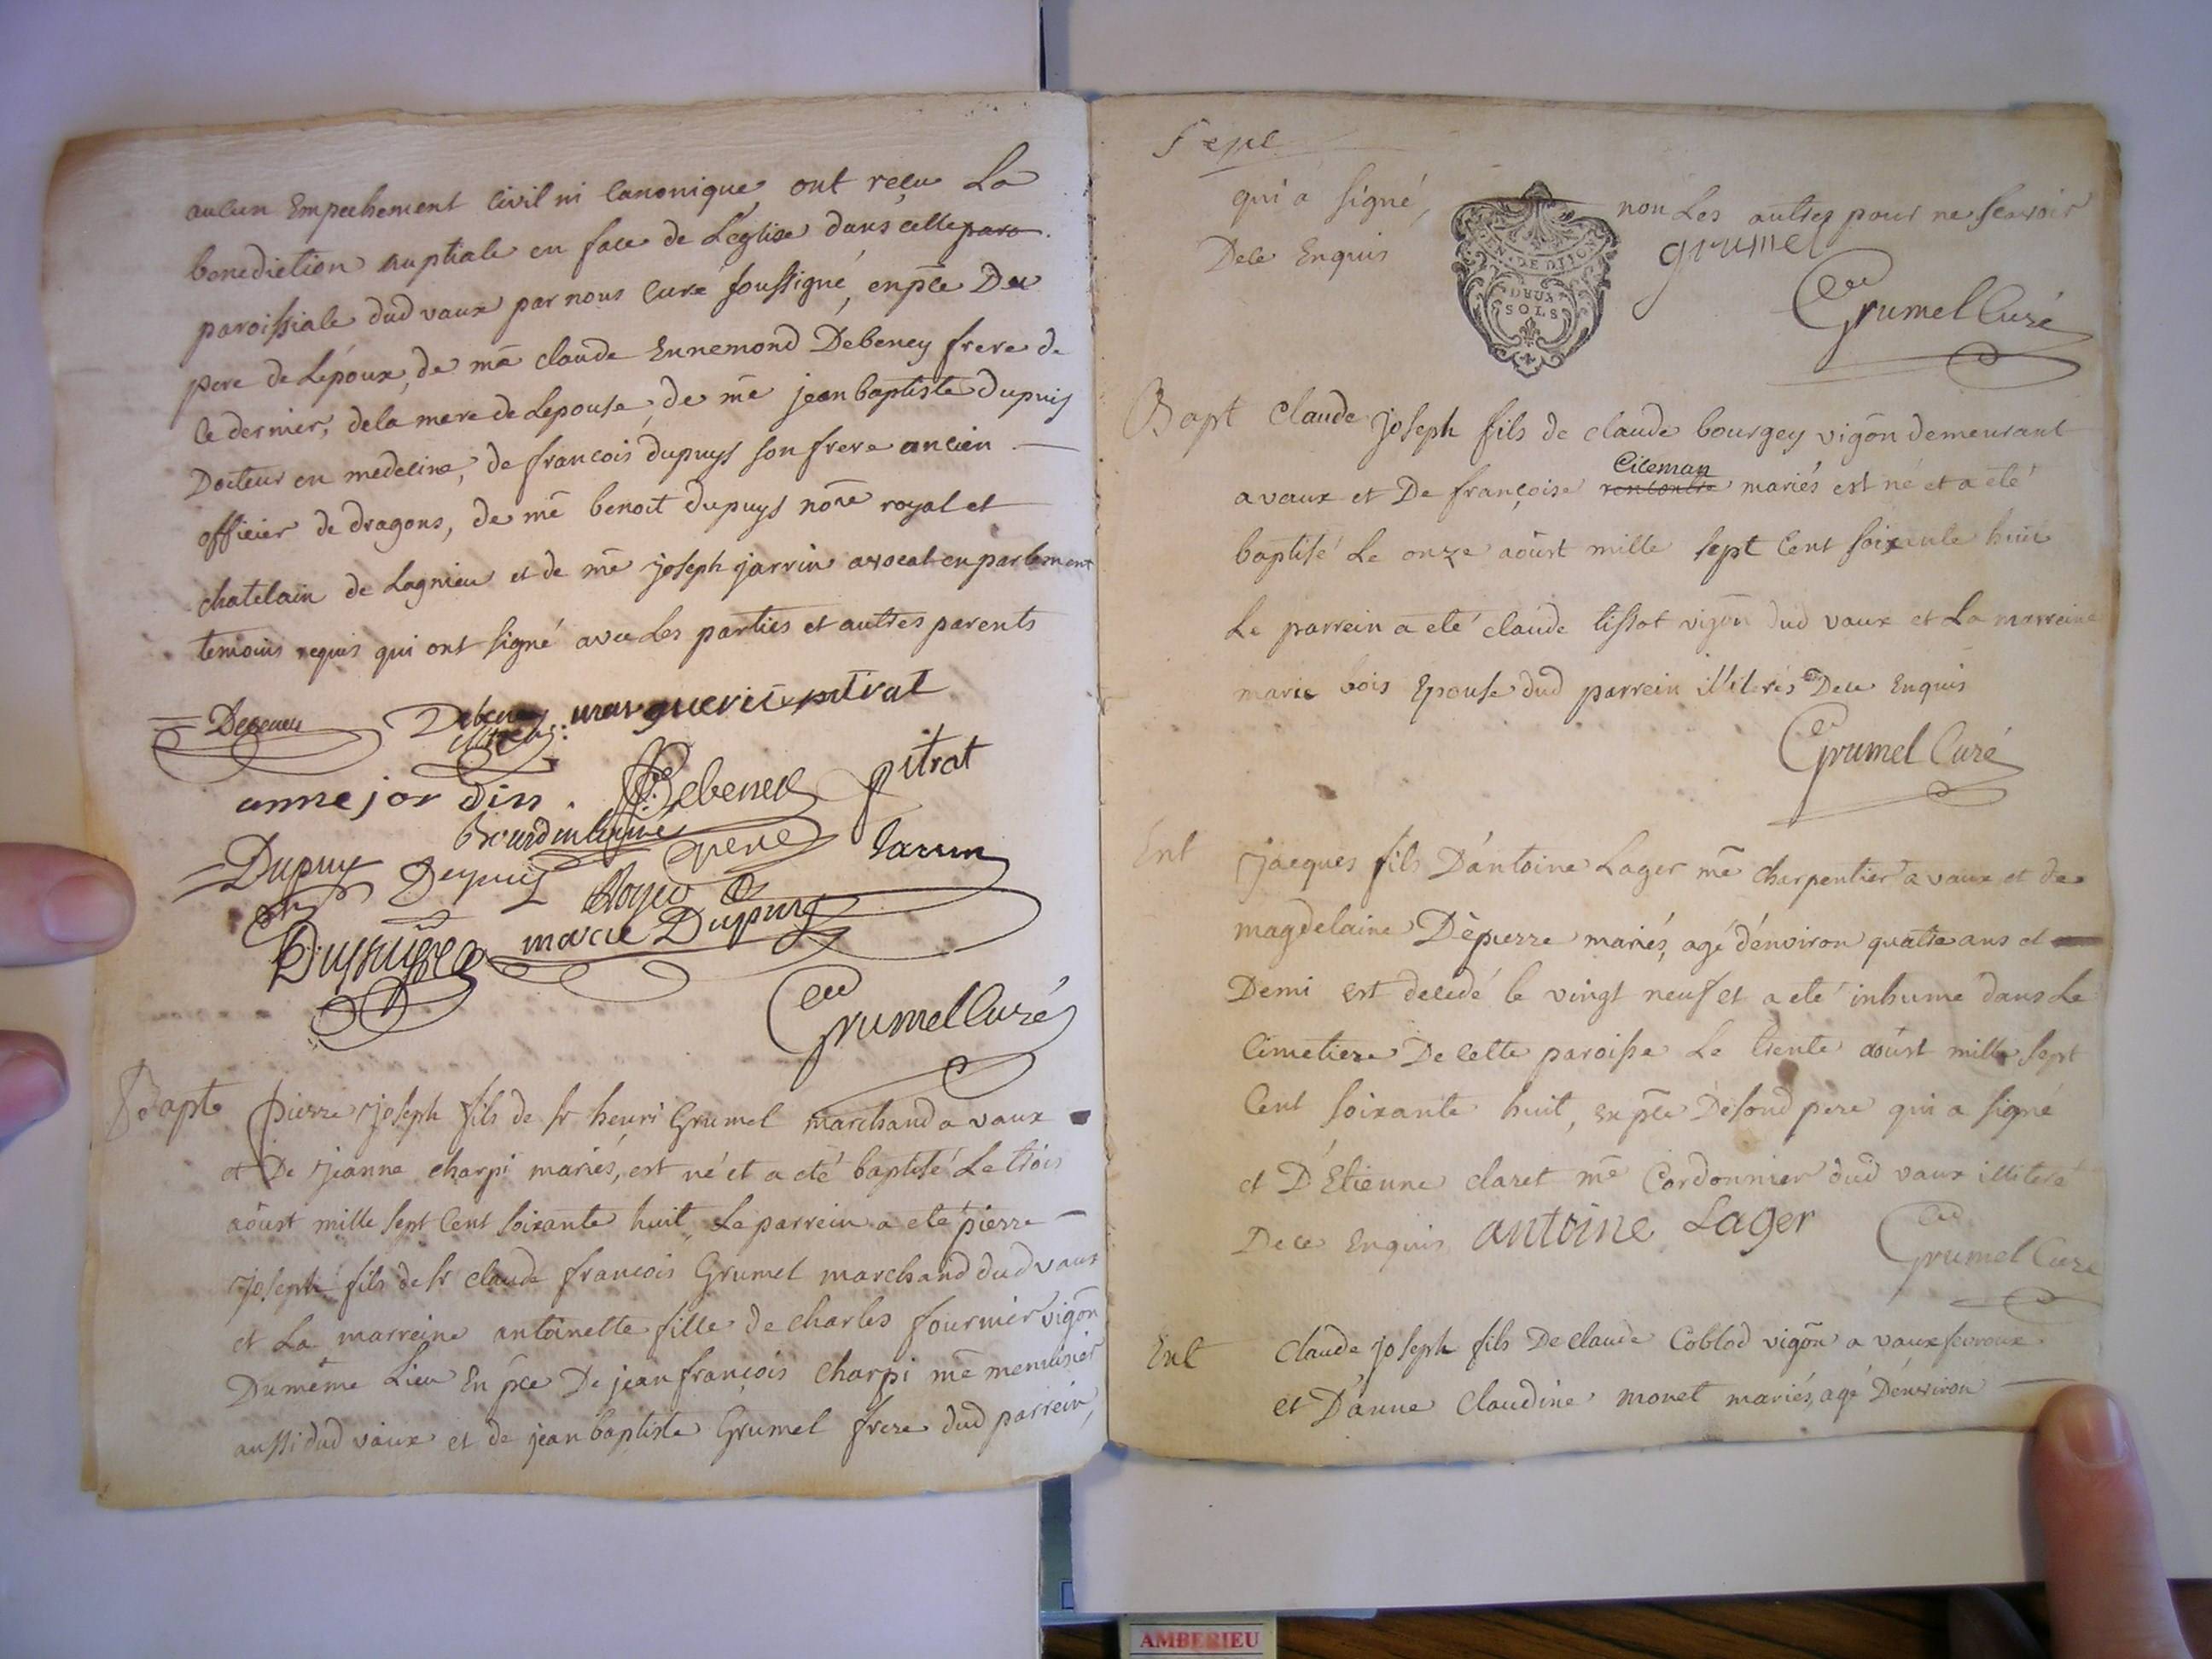 aucun Empechement civil ni canonique, ont reçu La
benediction nuptiale en face de L'eglise dans cette paro
paroissiale dud vaux par nous curé soussigné, en pce Du
pere de L'époux, de me claude Ennemond Debeney frere de
ce dernier, de la mere de L'epouse, de me jean baptiste dupuy
Docteur en medecine, de francois dupuys son frere ancien
officier de dragons, de me benoit dupuys nore royal et
chatelain de Lagnieu et de me joseph jarrin avocat en parlement
temoins requis qui ont signé avec Les parties et autres parents
Debeney Debeney marguerite pitrat
anne jordin Debeney pitrat
Dupuy Dupuis Jarrin
marie Dupuy
Grumel Curé
Bapt pierre joseph fils de sr henri Grumel marchand a vaux
et De jeanne charpi mariés, est né et a été baptisé Le trois
aoust mille sept cent soixante huit, Le parrein a eté pierre
joseph fils de sr claude francois Grumel marchand dud vaux
et La marreine antoinette fille de charles fournier vigon
Du même Lieu En pce De jean françois charpi me menusier
aussi dud vaux et de jean baptiste Grumel frere dud parrein,
Sept
qui a signé, non Les autres pour ne scavoir
De ce Enquis grumel
GEN. DE DIJON
DEUX
SOLS
Grumel Curé
Bapt Claude joseph fils de claude bourgey vigon demeurant
Citeman
a vaux et De françoise rencontre mariés est né et a été
baptisé Le onze aoust mille sept cent soixante huit
Le parrein a eté claude tissot vigon dud vaux et La marreine
marie bois Epouse dud parrein illiterés De ce Enquis
Grumel Curé
Ent jacques fils D'antoine Lager me charpentier a vaux et de
magdelaine Dépierre mariés, agé d'environ quatre ans et
Demi est decedé le vingt neuf et a eté inhumé dans Le
Cimetiere De cette paroisse Le trente aoust mille sept
Cent soixante huit, en pce De son d pere qui a signé
et D'Etienne claret me Cordonnier dud vaux illiteré
De ce Enquis antoine Lager
Grumel Curé
Ent Claude joseph fils De claude Coblod vigon a vaux fevroux
et D'anne Claudine monet mariés, agé D'environ
AMBERIEU